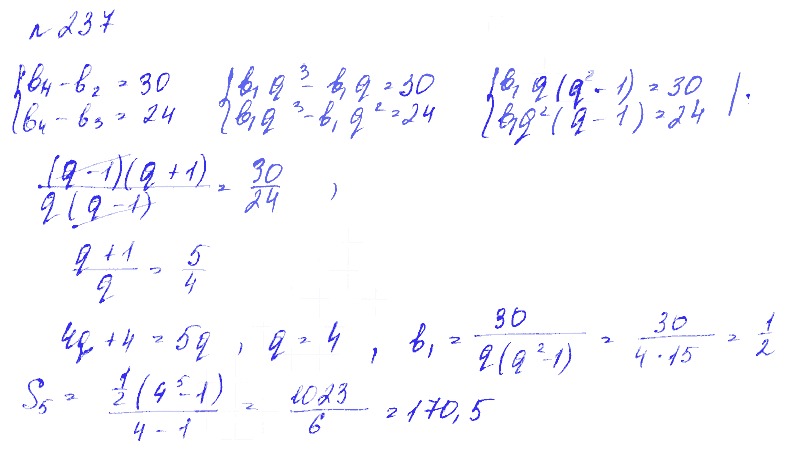 № 237
{ b₄ - b₂ = 30 { b₁q³ - b₁q = 30 { b₁q(q² - 1) = 30
{ b₄ - b₃ = 24 { b₁q³ - b₁q² = 24 { b₁q²(q - 1) = 24 | :
(q - 1)(q + 1) / q(q - 1) = 30/24 ,
(q + 1)/q = 5/4
4q + 4 = 5q , q = 4 , b₁ = 30/(q(q² - 1)) = 30/(4·15) = 1/2
S₅ = 1/2(4⁵ - 1)/(4 - 1) = 1023/6 = 170,5